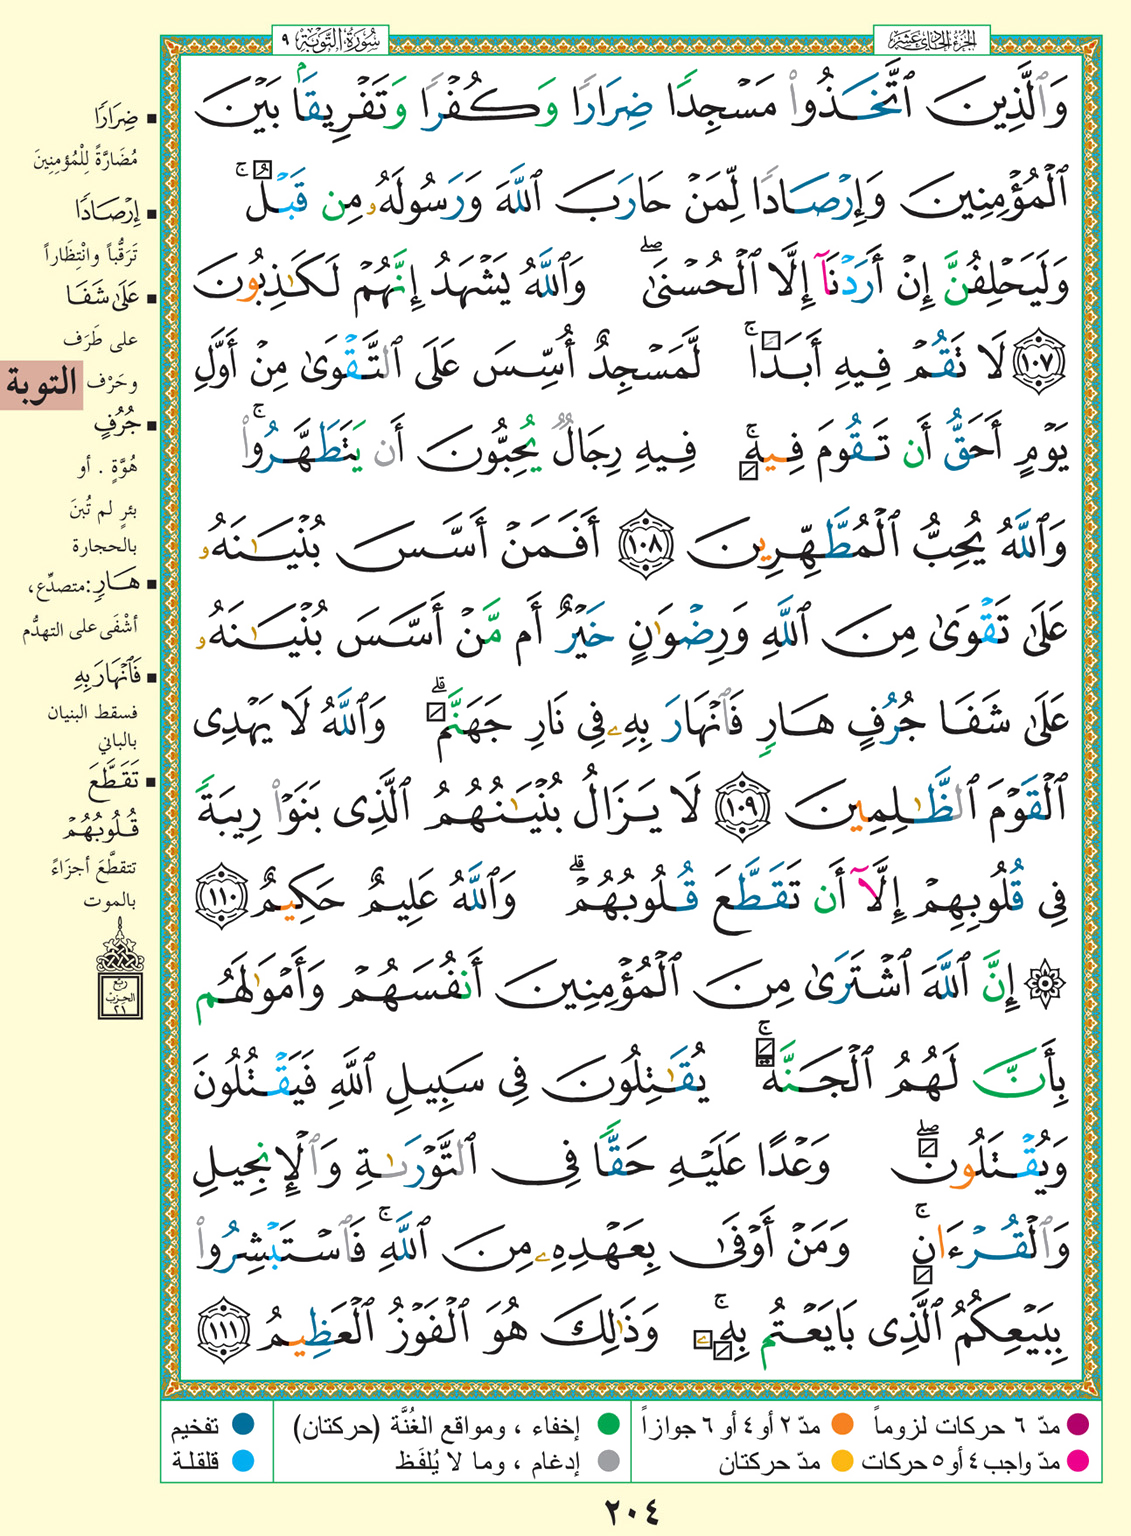 الجزء الحادي عشر
سُورَةُ التَّوْبَةِ ٩
وَٱلَّذِينَ ٱتَّخَذُوا۟ مَسْجِدًا ضِرَارًا وَكُفْرًا وَتَفْرِيقًۢا بَيْنَ
ٱلْمُؤْمِنِينَ وَإِرْصَادًا لِّمَنْ حَارَبَ ٱللَّهَ وَرَسُولَهُۥ مِن قَبْلُ ۚ
وَلَيَحْلِفُنَّ إِنْ أَرَدْنَآ إِلَّا ٱلْحُسْنَىٰ ۖ وَٱللَّهُ يَشْهَدُ إِنَّهُمْ لَكَـٰذِبُونَ
١٠٧ لَا تَقُمْ فِيهِ أَبَدًا ۚ لَّمَسْجِدٌ أُسِّسَ عَلَى ٱلتَّقْوَىٰ مِنْ أَوَّلِ
يَوْمٍ أَحَقُّ أَن تَقُومَ فِيهِ ۚ فِيهِ رِجَالٌ يُحِبُّونَ أَن يَتَطَهَّرُوا۟ ۚ
وَٱللَّهُ يُحِبُّ ٱلْمُطَّهِّرِينَ ١٠٨ أَفَمَنْ أَسَّسَ بُنْيَـٰنَهُۥ
عَلَىٰ تَقْوَىٰ مِنَ ٱللَّهِ وَرِضْوَٰنٍ خَيْرٌ أَم مَّنْ أَسَّسَ بُنْيَـٰنَهُۥ
عَلَىٰ شَفَا جُرُفٍ هَارٍ فَٱنْهَارَ بِهِۦ فِى نَارِ جَهَنَّمَ ۗ وَٱللَّهُ لَا يَهْدِى
ٱلْقَوْمَ ٱلظَّـٰلِمِينَ ١٠٩ لَا يَزَالُ بُنْيَـٰنُهُمُ ٱلَّذِى بَنَوْا۟ رِيبَةً
فِى قُلُوبِهِمْ إِلَّآ أَن تَقَطَّعَ قُلُوبُهُمْ ۗ وَٱللَّهُ عَلِيمٌ حَكِيمٌ ١١٠
۞ إِنَّ ٱللَّهَ ٱشْتَرَىٰ مِنَ ٱلْمُؤْمِنِينَ أَنفُسَهُمْ وَأَمْوَٰلَهُم
بِأَنَّ لَهُمُ ٱلْجَنَّةَ ۚ يُقَـٰتِلُونَ فِى سَبِيلِ ٱللَّهِ فَيَقْتُلُونَ
وَيُقْتَلُونَ ۖ وَعْدًا عَلَيْهِ حَقًّا فِى ٱلتَّوْرَىٰةِ وَٱلْإِنجِيلِ
وَٱلْقُرْءَانِ ۚ وَمَنْ أَوْفَىٰ بِعَهْدِهِۦ مِنَ ٱللَّهِ ۚ فَٱسْتَبْشِرُوا۟
بِبَيْعِكُمُ ٱلَّذِى بَايَعْتُم بِهِۦ ۚ وَذَٰلِكَ هُوَ ٱلْفَوْزُ ٱلْعَظِيمُ ١١١
ضِرَارًا
مُضَارَّةً لِلْمُؤْمِنِينَ
إِرْصَادًا
تَرَقُّباً وانْتِظَاراً
عَلَىٰ شَفَا
على طَرَف
وحَرْف
التوبة
جُرُفٍ
هُوَّةٍ . أو
بئرٍ لم تُبنَ
بالحجارة
هَارٍ: متصدِّع،
أشْفَى على التهدُّم
فَٱنْهَارَ بِهِ
فسقط البنيان
بالباني
تَقَطَّعَ
قُلُوبُهُمْ
تتقطَّعَ أجزَاءً
بالموت
ربع
الحزب
٢١
مدّ ٦ حركات لزوماً
مدّ ٢ أو ٤ أو ٦ جوازاً
إخفاء ، ومواقع الغُنَّة (حركتان)
تفخيم
مدّ واجب ٤ أو ٥ حركات
مدّ حركتان
إدغام ، وما لا يُلفَظ
قلقلة
٢٠٤